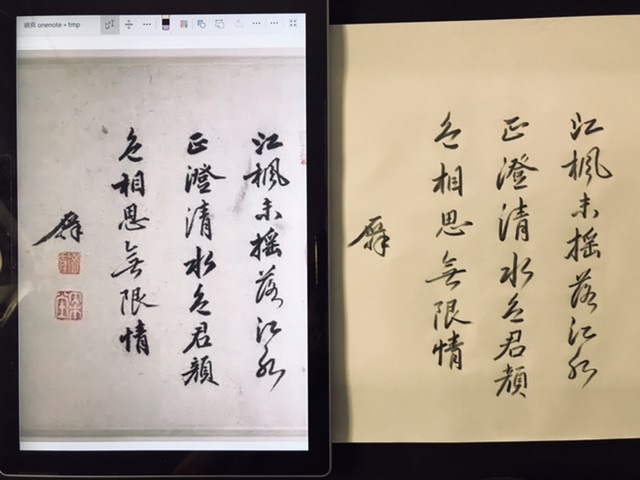 網頁 onenote • tmp
江楓未搖落江水
正澄清水色君顏
色相思無限情
江楓未搖落江水
正澄清水色君顏
色相思無限情